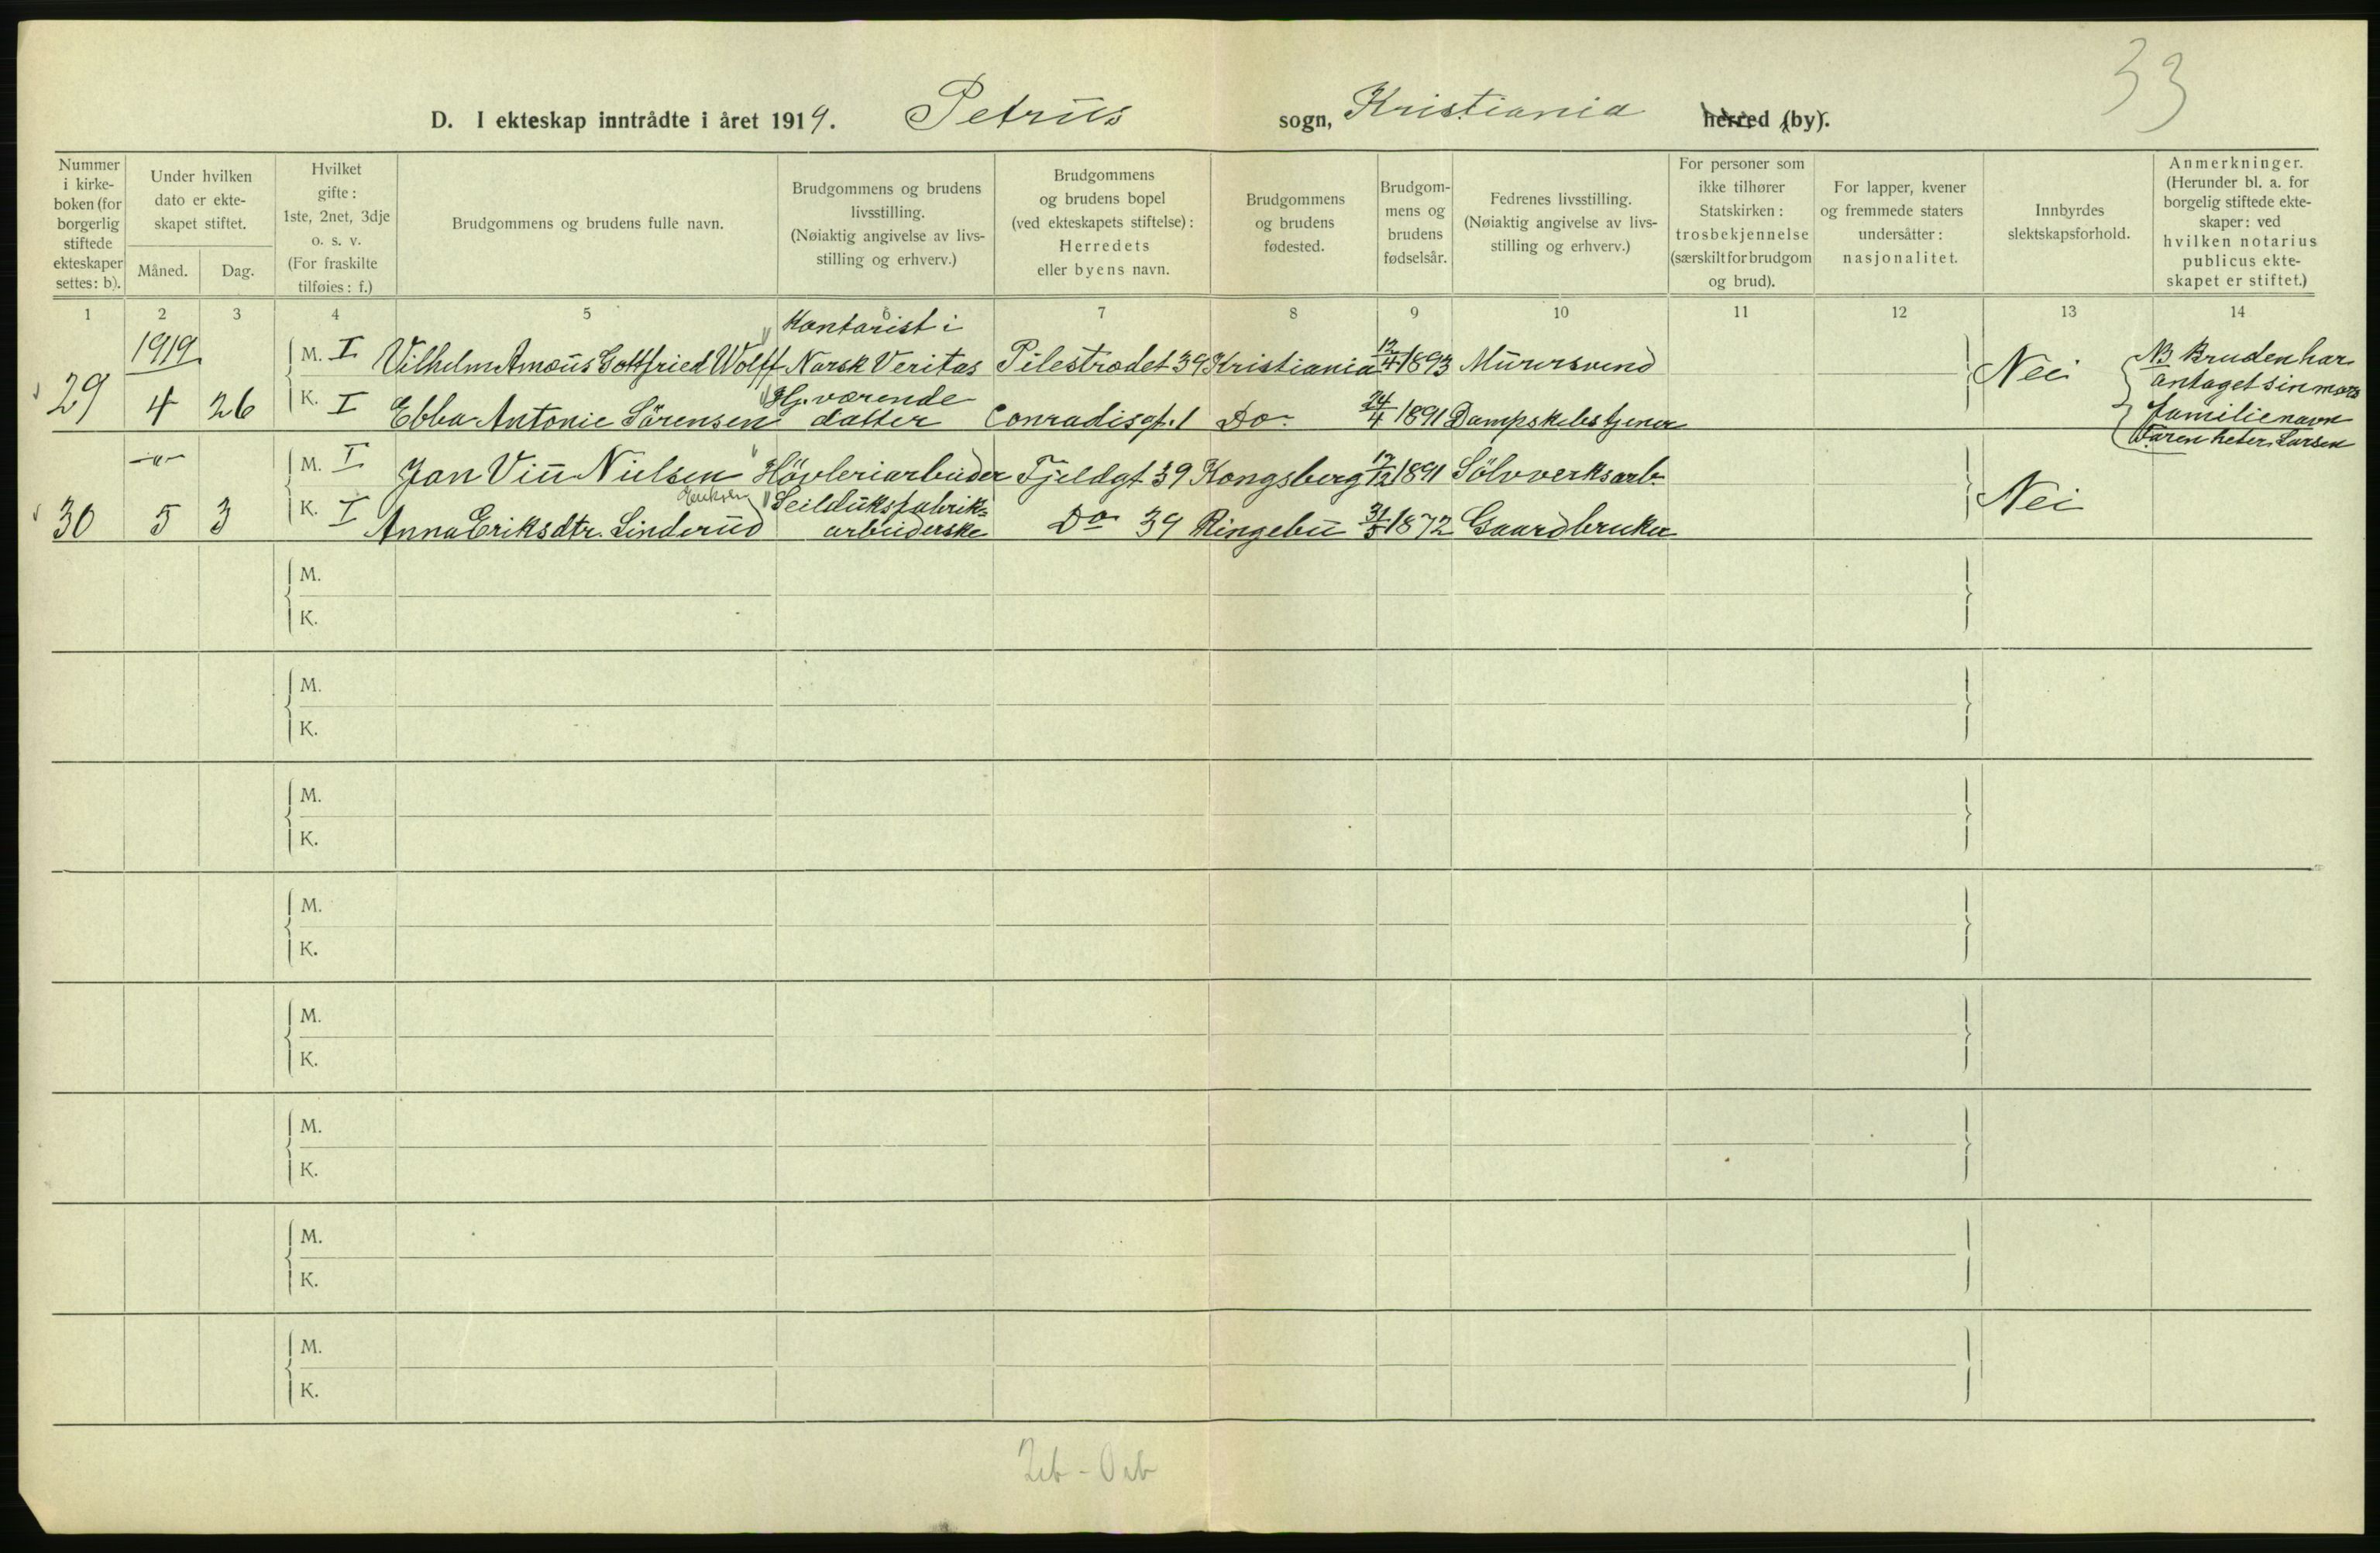 33
D. I ekteskap inntrådte i året 1919. Petrus sogn, Kristiania herred (by).
Nummer
i kirke-
boken (for
borgerlig
stiftede
ekteskaper
settes: b).
Under hvilken
dato er ekte-
skapet stiftet.
Måned.
Dag.
Hvilket
gifte:
1ste, 2net, 3dje
o. s. v.
(For fraskilte
tilføies: f.)
Brudgommens og brudens fulle navn.
Brudgommens og brudens
livsstilling.
(Nøiaktig angivelse av livs-
stilling og erhverv.)
Brudgommens
og brudens bopel
(ved ekteskapets stiftelse):
Herredets
eller byens navn.
Brudgommens
og brudens
fødested.
Brudgom-
mens og
brudens
fødselsår.
Fedrenes livsstilling.
(Nøiaktig angivelse av livs-
stilling og erhverv.)
For personer som
ikke tilhører
Statskirken:
trosbekjennelse
(særskilt for brudgom
og brud).
For lapper, kvener
og fremmede staters
undersåtter:
nasjonalitet.
Innbyrdes
slektskapsforhold.
Anmerkninger.
(Herunder bl. a. for
borgelig stiftede ekte-
skaper: ved
hvilken notarius
publicus ekte-
skapet er stiftet.)
1 2 3 4 5 6 7 8 9 10 11 12 13 14
1919
Kontorist i
M. I Vilhelm Amœus Gottfried Wolff Norsk Veritas Pilestrædet 39 Kristiania 12/4 1893 Murersvend
29 4 26
Hj. værende
K. I Ebba Antonie Sörensen datter Conradisgt. 1 Do 24/4 1891 Dampskibstjener
Nei
NB Bruden har
antaget sin mors
familienavn
Faren heter Larsen
-"-
M. I Jon Viu Nielsen Hövleriarbeider Fjeldgt 39 Kongsberg 17/12 1891 Sölvverksarb.
30 5 3
Eriksen
Seilduksfabrik-
K. I Anna Eriksdtr. Linderud arbeiderske Do 39 Ringebu 31/5 1872 Gaardbruker
Nei
M.
K.
M.
K.
M.
K.
M.
K.
M.
K.
M.
K.
M.
K.
M.
K.